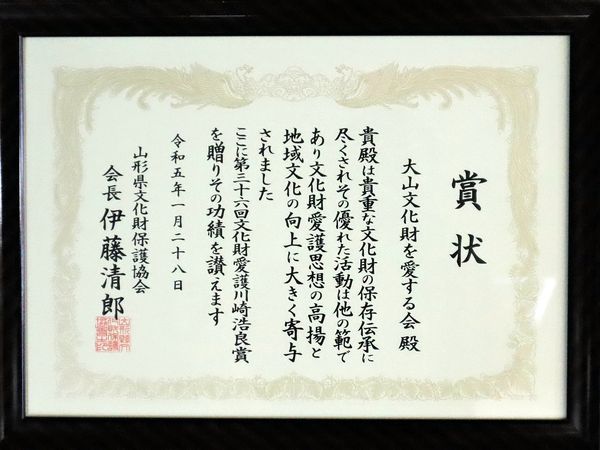 賞状
大山文化財を愛する会 殿
貴殿は貴重な文化財の保存伝承に
尽くされその優れた活動は他の範で
あり文化財愛護思想の高揚と
地域文化の向上に大きく寄与
されました
ここに第三十六回文化財愛護川崎浩良賞
を贈りその功績を讃えます
令和五年一月二十八日
山形県文化財保護協会
会長 伊藤清郎